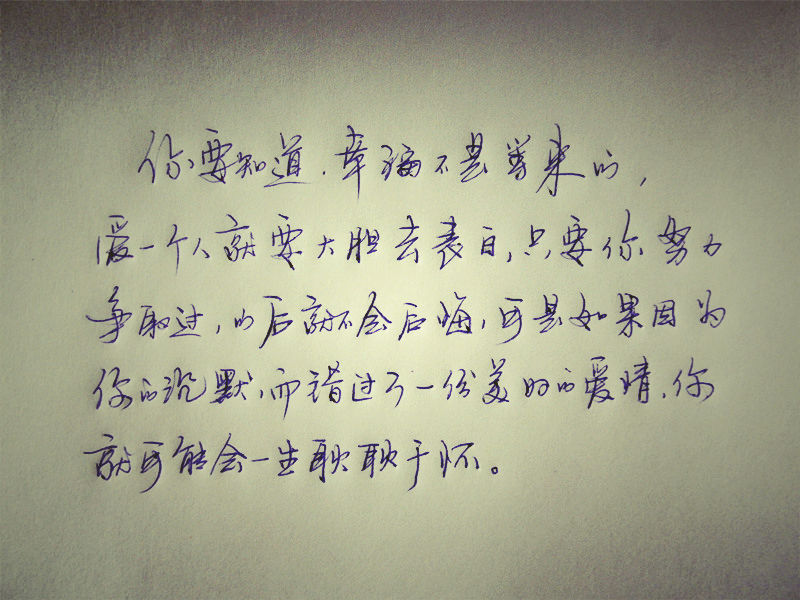 你要知道，幸福不是等来的，
爱一个人就要大胆去表白，只要你努力
争取过，以后就不会后悔，可是如果因为
你的沉默，而错过了一份美好的爱情，你
就可能会一生耿耿于怀。